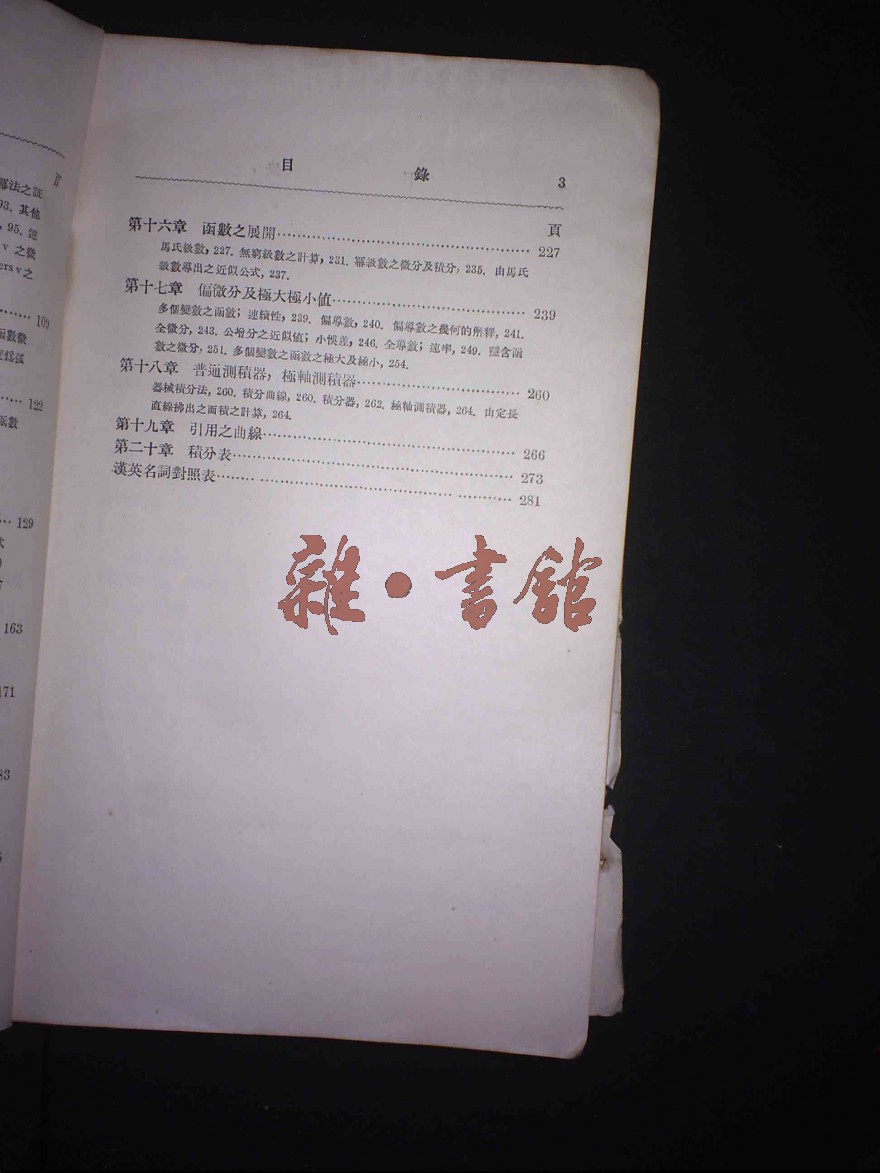 目 錄 3
頁
第十六章 函數之展開 227
馬氏級數, 227. 無窮級數之計算, 231. 冪級數之微分及積分, 235. 由馬氏
級數導出之近似公式, 237.
第十七章 偏微分及極大極小值 239
多個變數之函數; 連續性, 239. 偏導數, 240. 偏導數之幾何的解釋, 241.
全微分, 243. 公增分之近似值; 小悞差, 246. 全導數; 速率, 249. 隱含函
數之微分, 251. 多個變數之函數之極大及極小, 254.
第十八章 普通測積器, 極軸測積器 260
器械積分法, 260. 積分曲線, 260. 積分器, 262. 極軸測積器, 264. 由定長
直線拂出之面積之計算, 264.
第十九章 引用之曲線 266
第二十章 積分表 273
漢英名詞對照表 281
雜•書館
頁
之証
93. 其他
, 95. 速
v 之微
ers v 之
109
函數微
122
函數
129
163
171
83